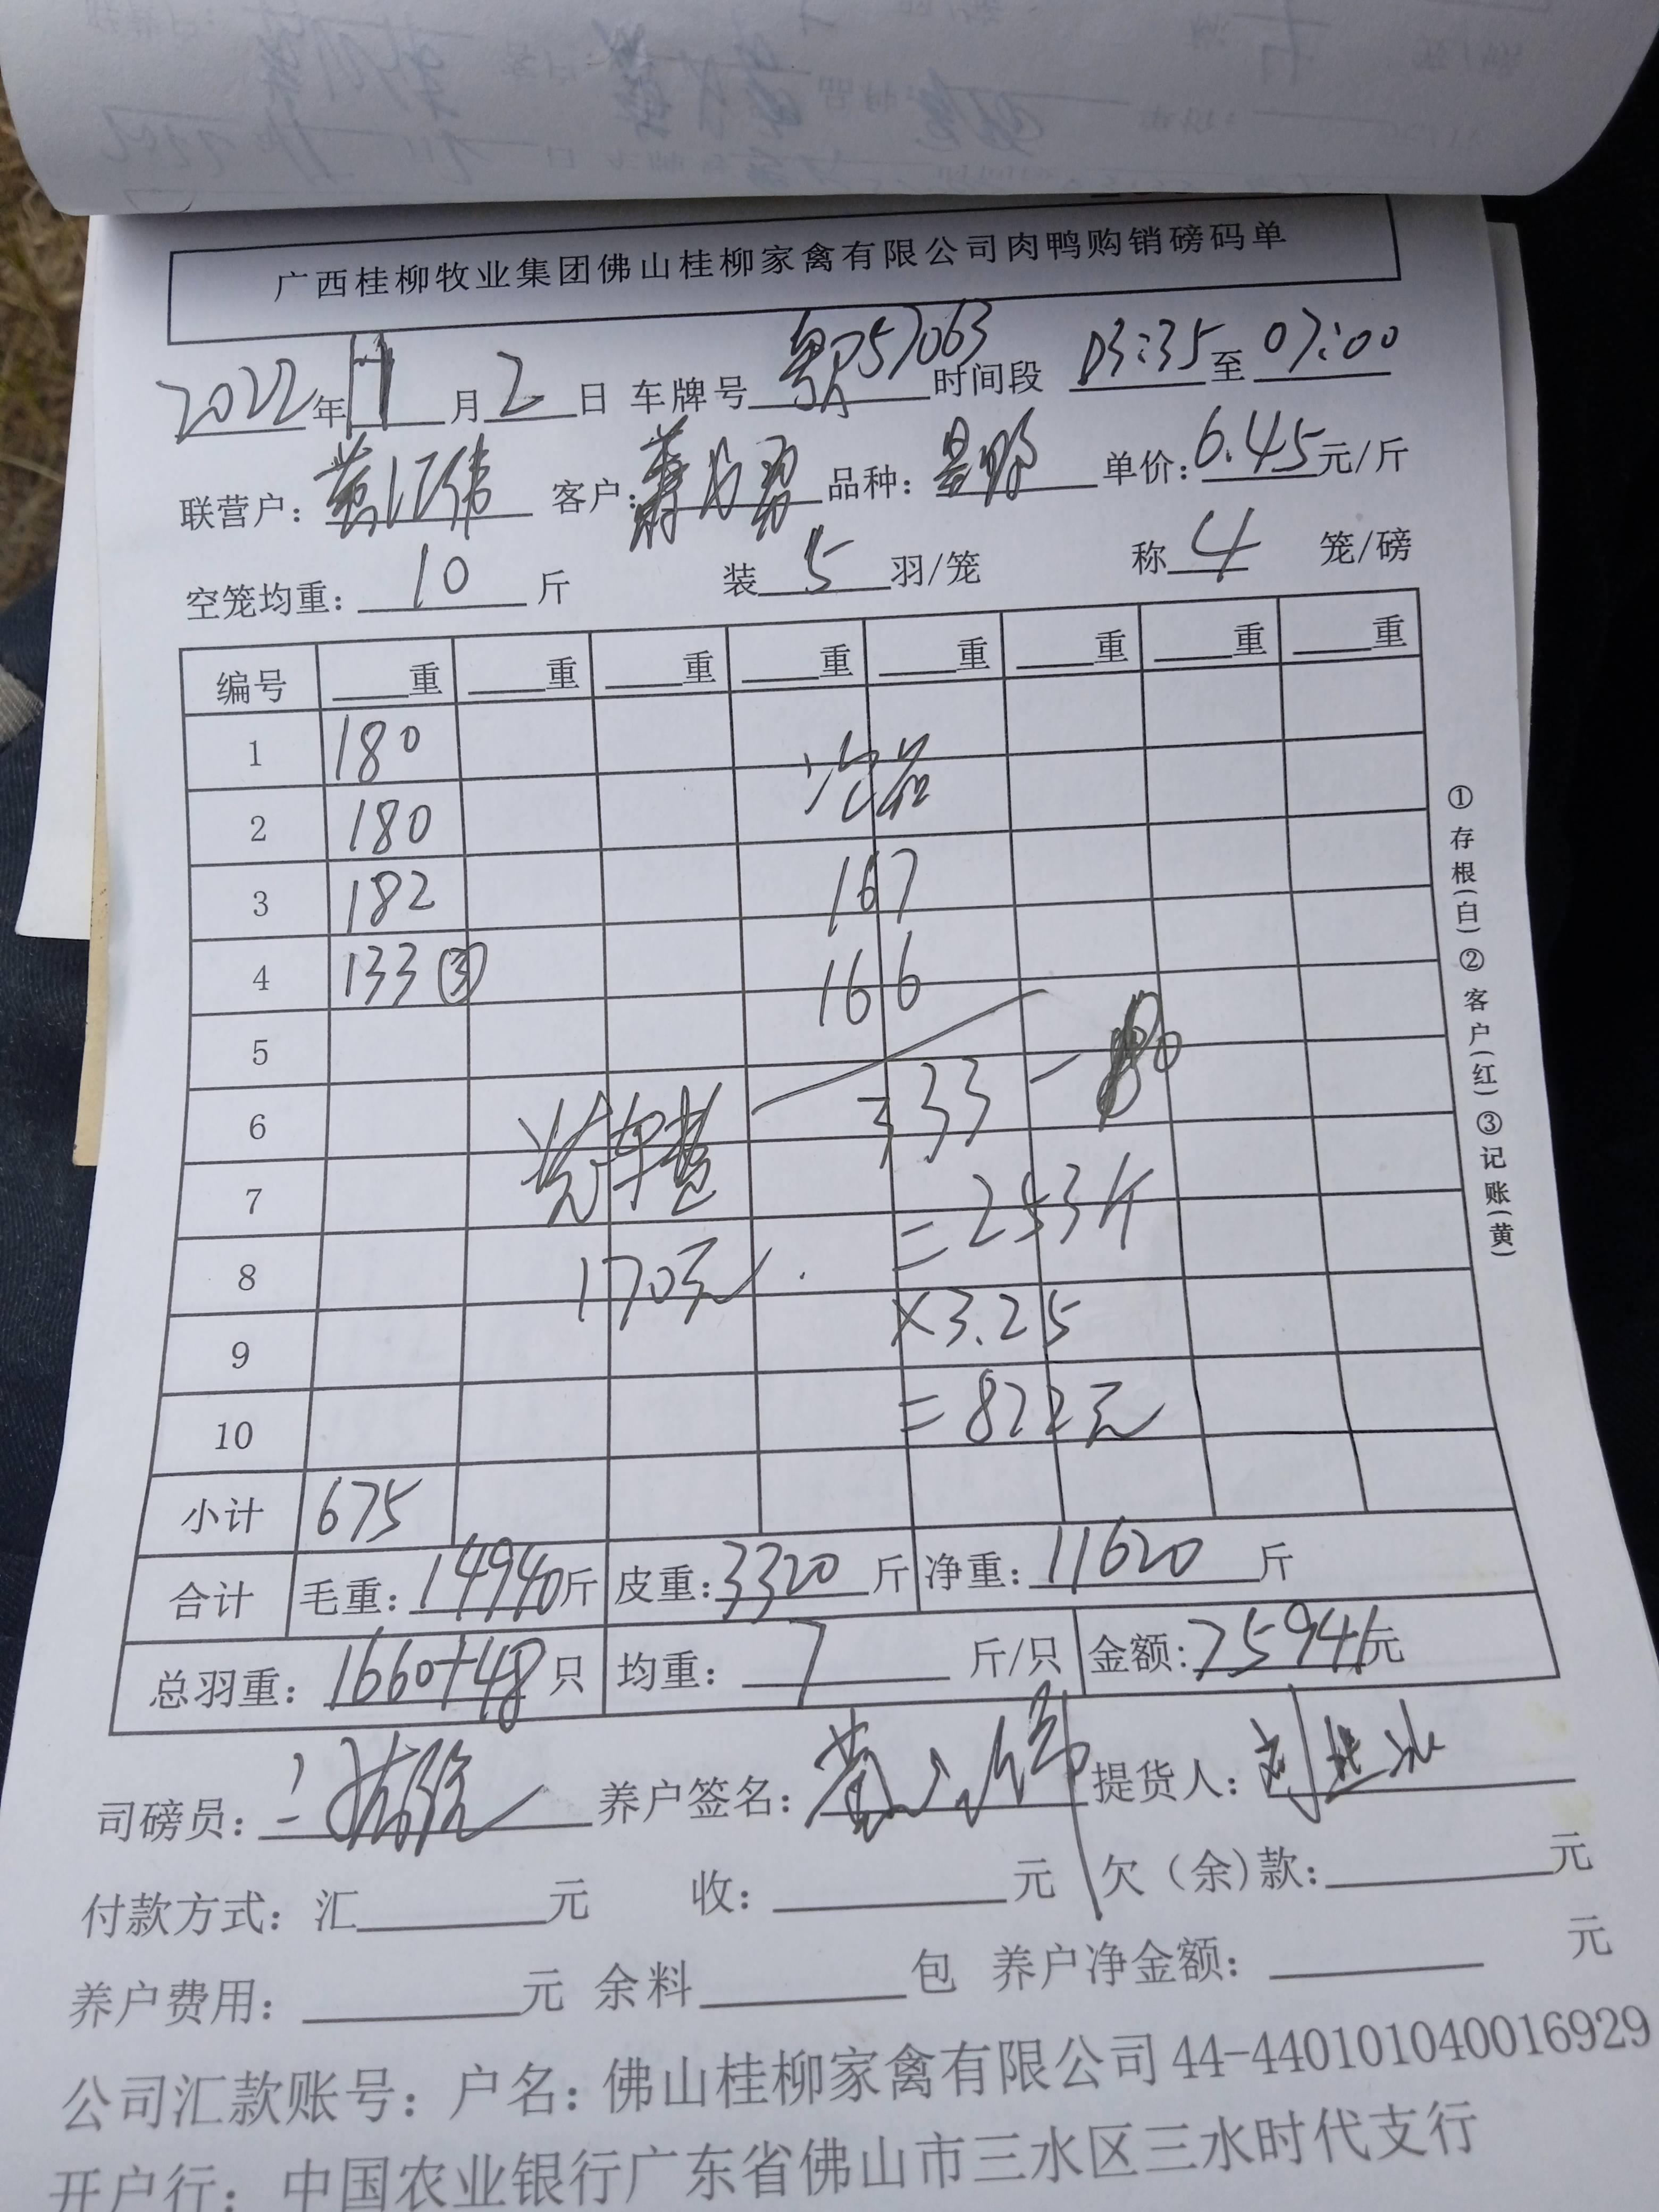 广西桂柳牧业集团佛山桂柳家禽有限公司肉鸭购销磅码单
2022年11月2日 车牌号 粤R57063 时间段 03:35至07:00
联营户： 客户： 品种： 单价：6.45元/斤
空笼均重：10斤 装5羽/笼 称4笼/磅
编号 重 重 重 重 重 重 重 重
1 180
2 180
3 182 167
4 133③ 166
5
6 333-80
7 =253斤
8 170元
9 ×3.25
10 =822元
小计 675
合计 毛重：14940斤 皮重：3320斤 净重：11620斤
总羽重：1660+48只 均重：7斤/只 金额：75941元
司磅员： 养户签名： 提货人：
付款方式：汇 元 收： 元 欠（余）款： 元
养户费用： 元 余料 包 养户净金额： 元
公司汇款账号：户名：佛山桂柳家禽有限公司44-440101040016929
开户行：中国农业银行广东省佛山市三水区三水时代支行
①存根(白)②客户(红)③记账(黄)